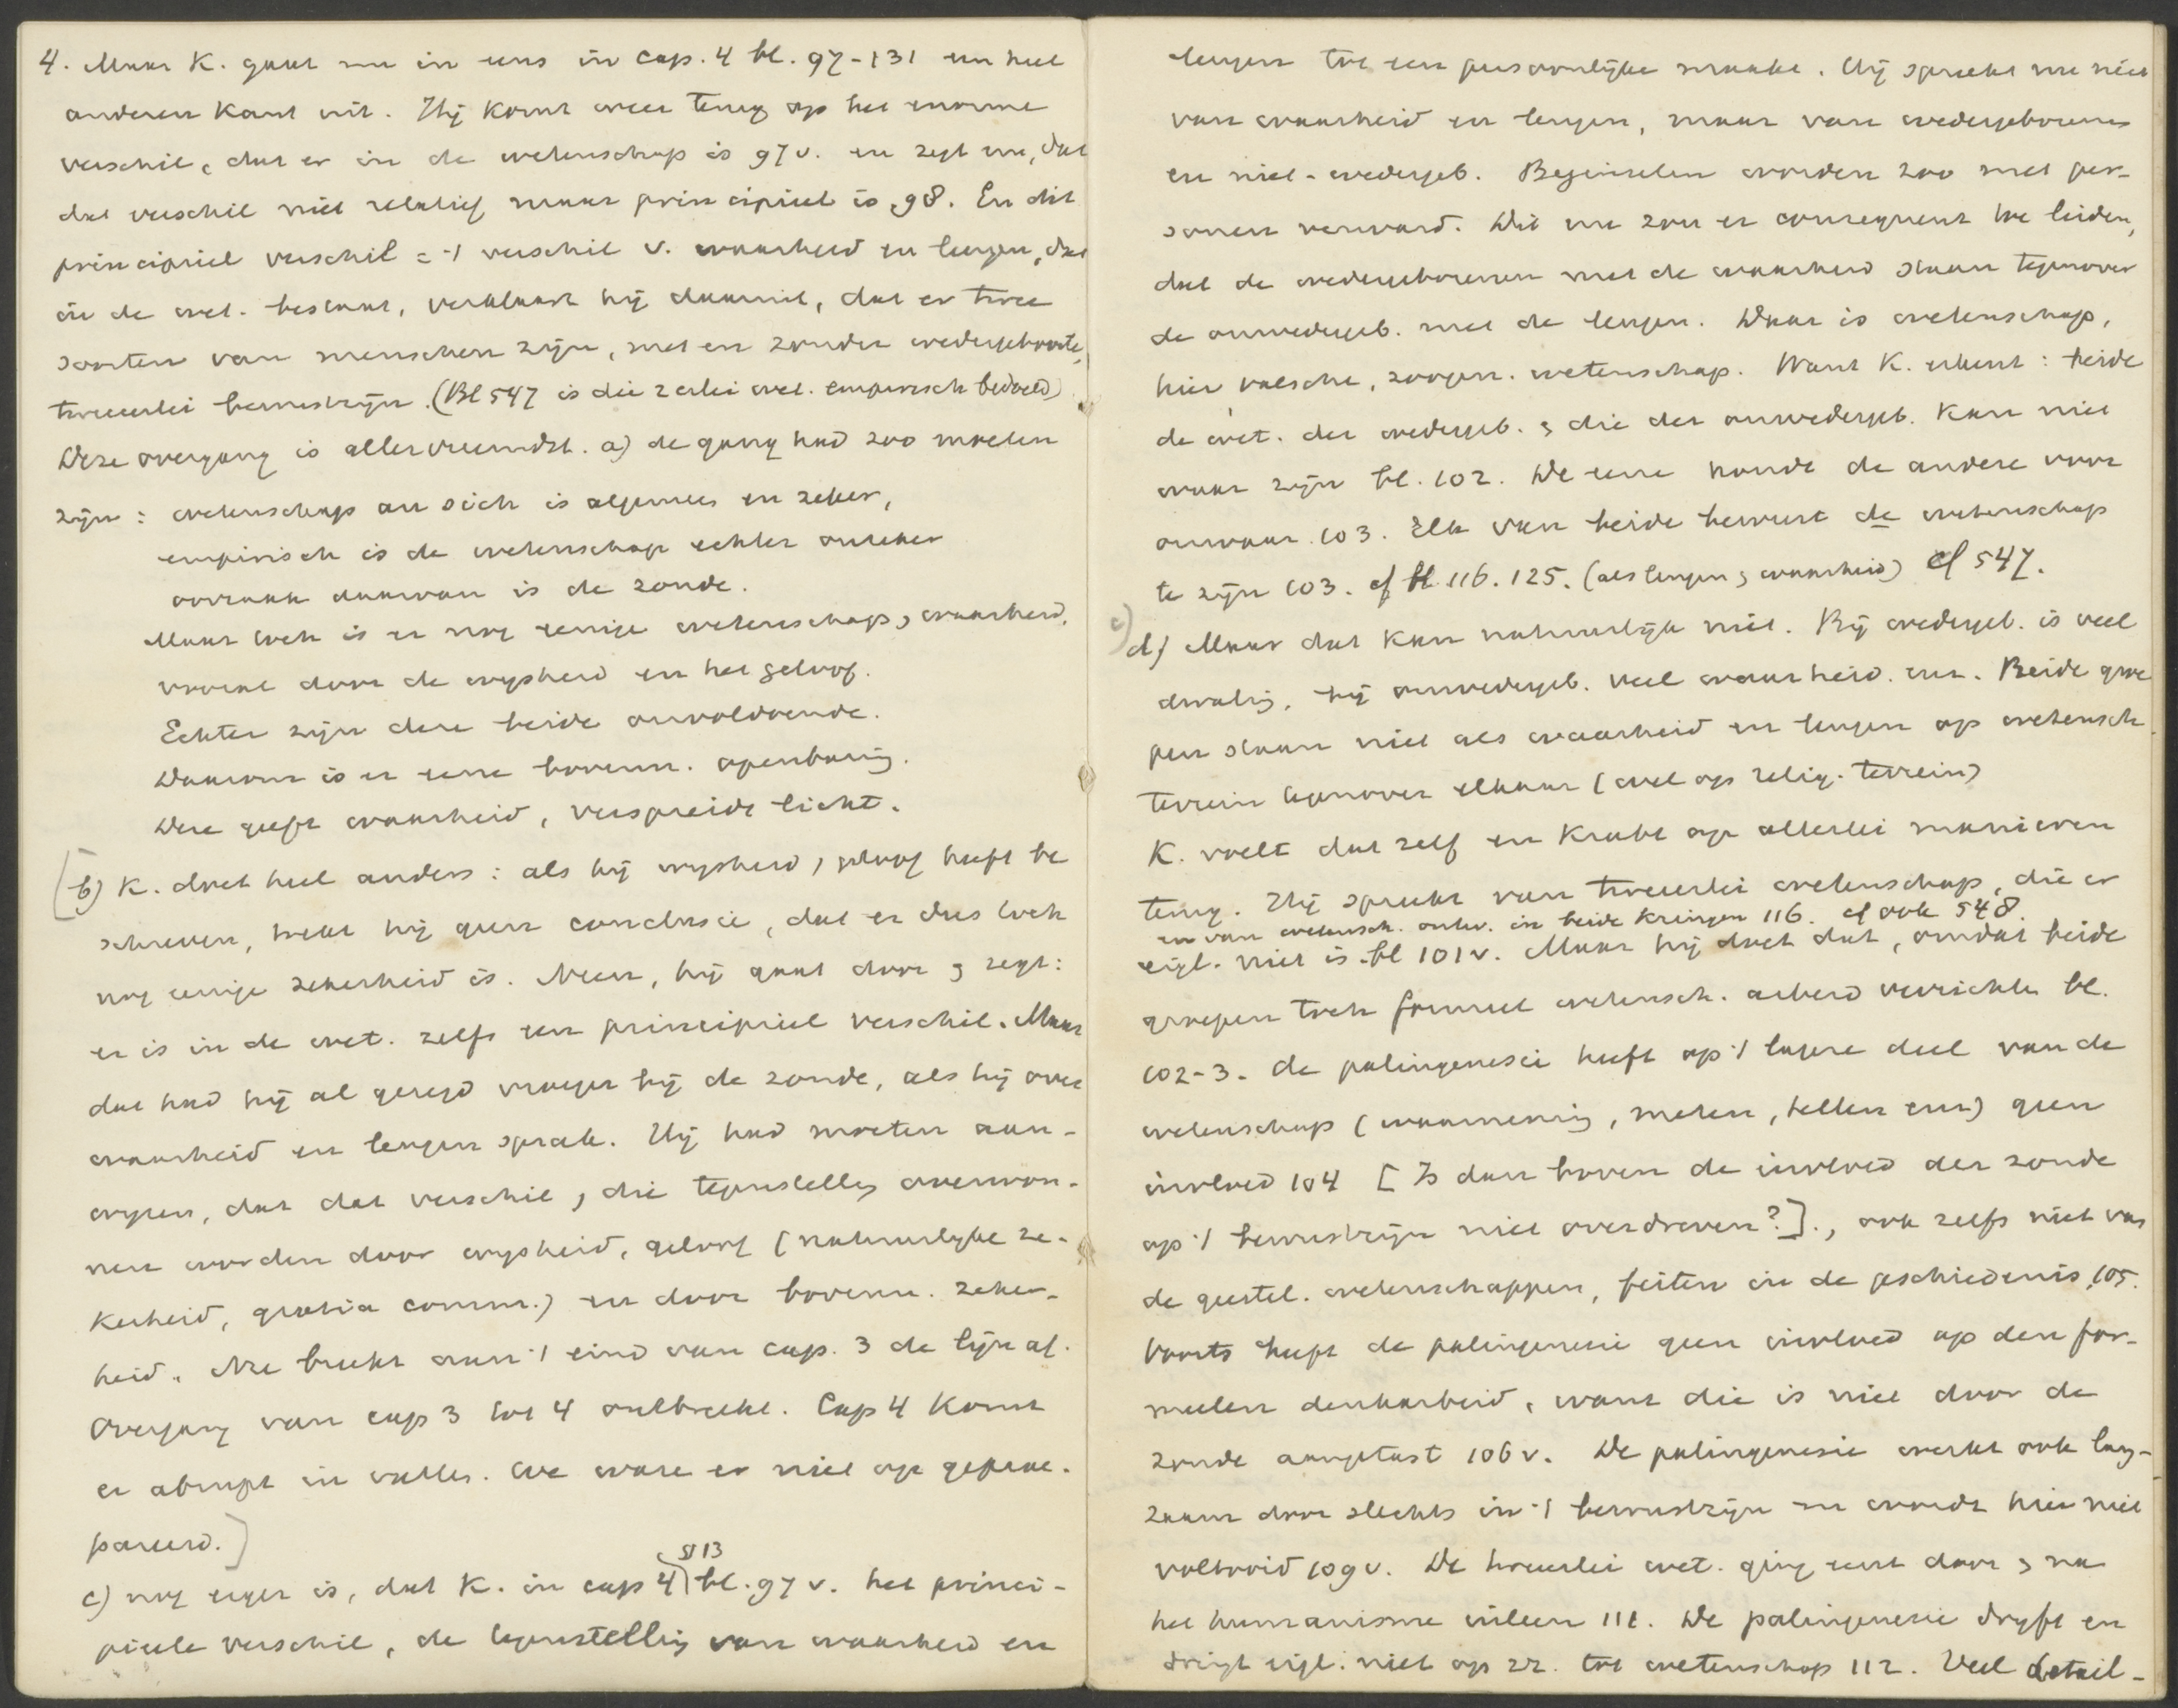 4. Maar K. gaat nu in eens in cap. 4 bl. 97-131 een heel
anderen kant uit. Hij komt weer terug op het enorme
verschil, dat er in de wetenschap is 97 v. en zegt nu, dat
dat verschil niet relatief maar principieel is, 98. En dit
principieel verschil = 't verschil v. waarheid en leugen, dat
in de wet. bestaat, verklaart hij daaruit, dat er twee
soorten van menschen zijn, met en zonder wedergeboorte,
tweeerlei bewustzijn. (Bl 547 is die 2erlei wet. empirisch bedoeld)
Deze overgang is allervreemdst. a) de gang had zoo moeten
zijn: wetenschap an sich is algemeen en zeker,
empirisch is de wetenschap echter onzeker
oorzaak daarvan is de zonde.
Maar toch is er nog eenige wetenschap, waarheid,
vooral door de wysheid en het geloof.
Echter zijn deze beide onvoldoende.
Daarom is er eene bovenn. openbaring.
Deze geeft waarheid, verspreidt licht.
[b) K. doet heel anders: als hij wysheid, geloof heeft be
schreven, trekt hij geen conclusie, dat er dus toch
nog eenige zekerheid is. Neen, hij gaat door en zegt:
er is in de wet. zelfs een principieel verschil. Maar
dat had hij al gezegd vroeger bij de zonde, als hij over
waarheid en leugen sprak. Hij had moeten aan-
wyzen, dat dat verschil, die tegenstelling overwon-
nen worden door wysheid, geloof (natuurlyke ze-
kerheid, gratia comm.) en door bovenn. zeker-
heid. Nu breekt aan 't eind van cap. 3 de lijn af.
Overgang van cap 3 tot 4 ontbreekt. Cap 4 komt
er abrupt in vallen. We ware er niet op geprae-
pareerd.]
c) nog erger is, dat K. in cap 4 § 13 bl. 97 v. het princi-
pieele verschil, de tegenstelling van waarheid en
leugen tot een persoonlijke maakt. Hij spreekt nu niet
van waarheid en leugen, maar van wedergeborenen
en niet-wedergeb. Beginselen worden zoo met per-
sonen verward. Dit nu zou er consequent toe leiden,
dat de wedergeborenen met de waarheid staan tegenover
de onwedergeb. met de leugen. Daar is wetenschap,
hier valsche, zoogen. wetenschap. Want K. erkent: beide
de wet. der wedergeb. en die der onwedergeb. kan niet
waar zijn bl. 102. De eene houdt de andere voor
onwaar. 103. Elk van beide beweert de wetenschap
te zijn 103. cf bl. 116. 125. (als leugen en waarheid) cf 547.
d) Maar dat kan natuurlijk niet. Bij wedergeb. is veel
dwaling, bij onwedergeb. veel waarheid. enz. Beide groe
pen staan niet als waarheid en leugen op wetensch.
terrein tegenover elkaar (wel op relig. terrein)
K. voelt dat zelf en krabt op allerlei manieren
terug. Hij spreekt van tweeerlei wetenschap, die er
en van wetensch. ontw. in beide kringen 116. cf ook 548.
eigl. niet is. bl 101 v. Maar hij doet dat, omdat beide
groepen toch formeel wetensch. arbeid verrichten bl.
102-3. de palingenesie heeft op 't lagere deel van de
wetenschap (waarneming, meten, tellen enz) geen
invloed 104 [Is dan boven de invloed der zonde
op 't bewustzijn niet overdreven?]., ook zelfs niet van
de geestel. wetenschappen, feiten in de geschiedenis, 105.
Voorts heeft de palingenesie geen invloed op den for-
meelen denkarbeid, want die is niet door de
zonde aangetast 106 v. De palingenesie werkt ook lang-
zaam door slechts in 't bewustzijn en wordt hier niet
voltooid 109 v. De tweeerlei wet. ging eerst door en na
het humanisme uiteen 111. De palingenesie dryft en
dringt eigl. niet op zz. tot wetenschap 112. Veel detail-